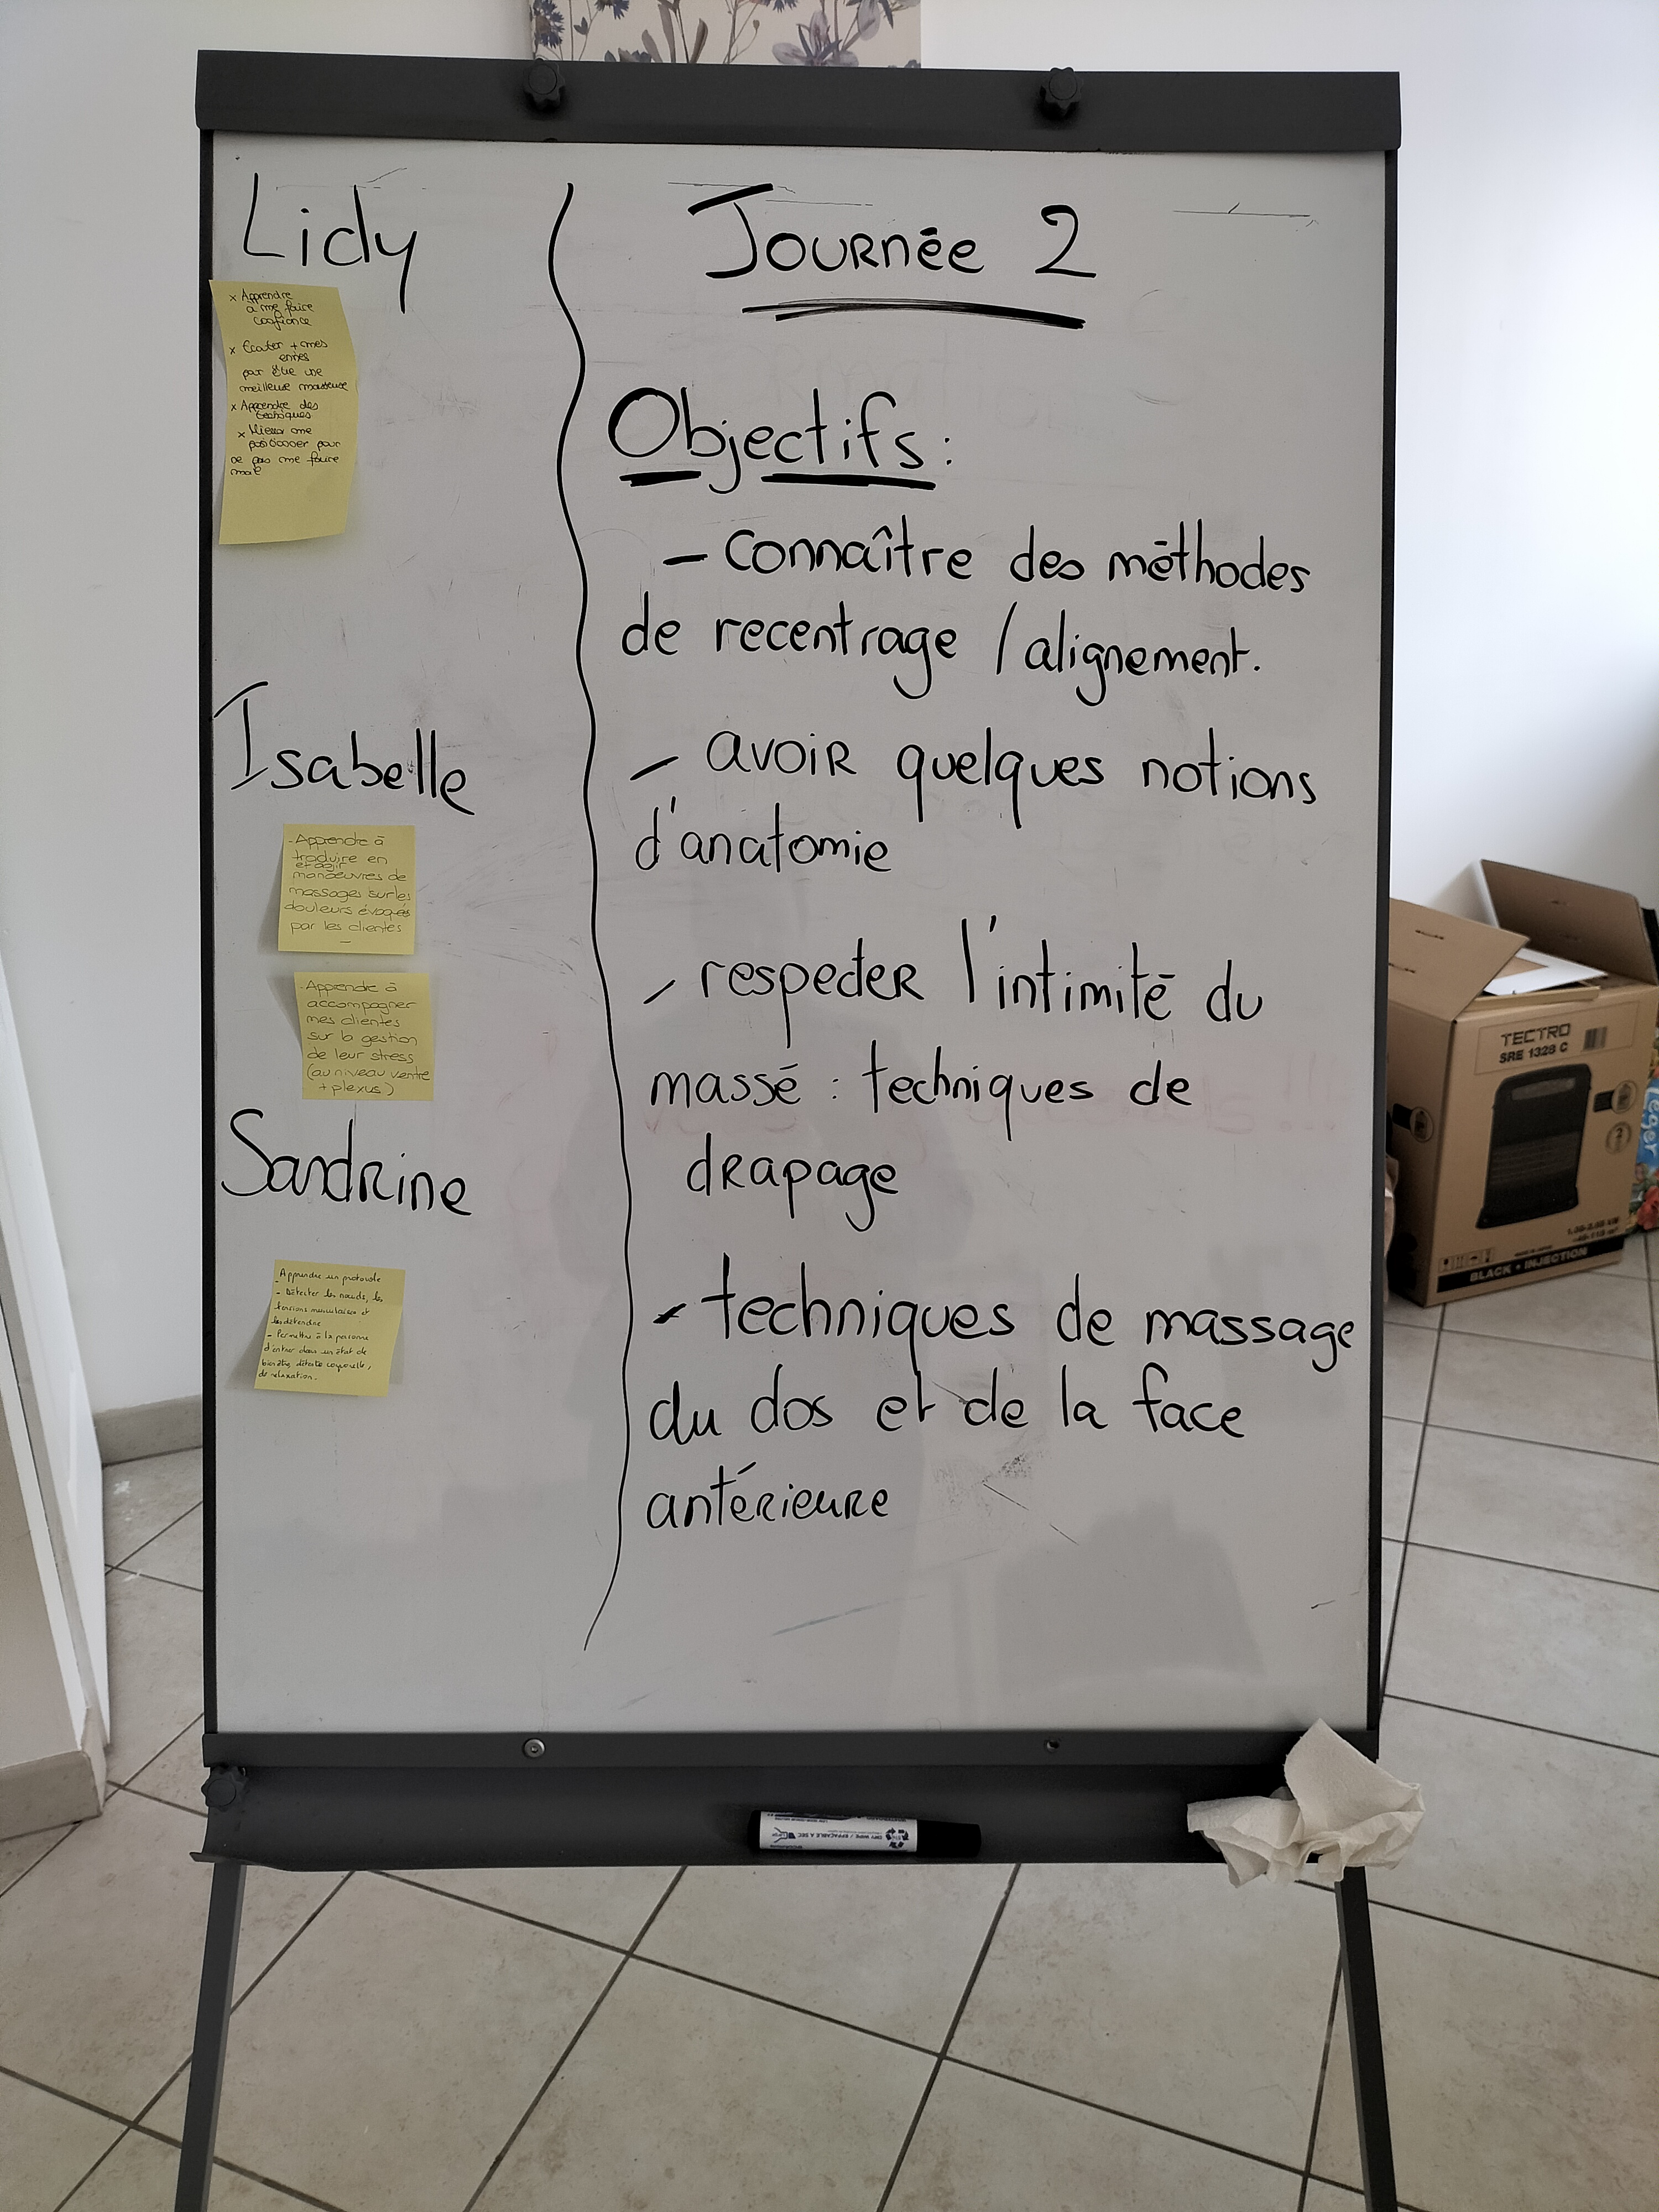 Lidy
x Apprendre
à me faire
confiance
x Ecouter + mes
par être une
meilleure masseuse
x Apprendre des
techniques
x Mieux me
positionner pour
ne pas me faire
mal
Isabelle
- Apprendre à
traduire en
et agir
manœuvres de
massages sur les
douleurs évoqués
par les clientes
- Apprendre à
accompagner
mes clientes
sur la gestion
de leur stress
(au niveau ventre
+ plexus)
Sandrine
Apprendre un protocole
- Détecter les nœuds, les
tensions musculaires et
les détendre
- Permettre à la personne
d'entrer dans un état de
bien être, détente corporelle,
de relaxation.
Journée 2
Objectifs :
- connaître des méthodes
de recentrage / alignement.
- avoir quelques notions
d'anatomie
- respecter l'intimité du
massé : techniques de
drapage
- techniques de massage
du dos et de la face
antérieure
TECTRO
SRE 1328 C
2
BLACK • INJECTION
DRY WIPE / EFFAÇABLE A SEC